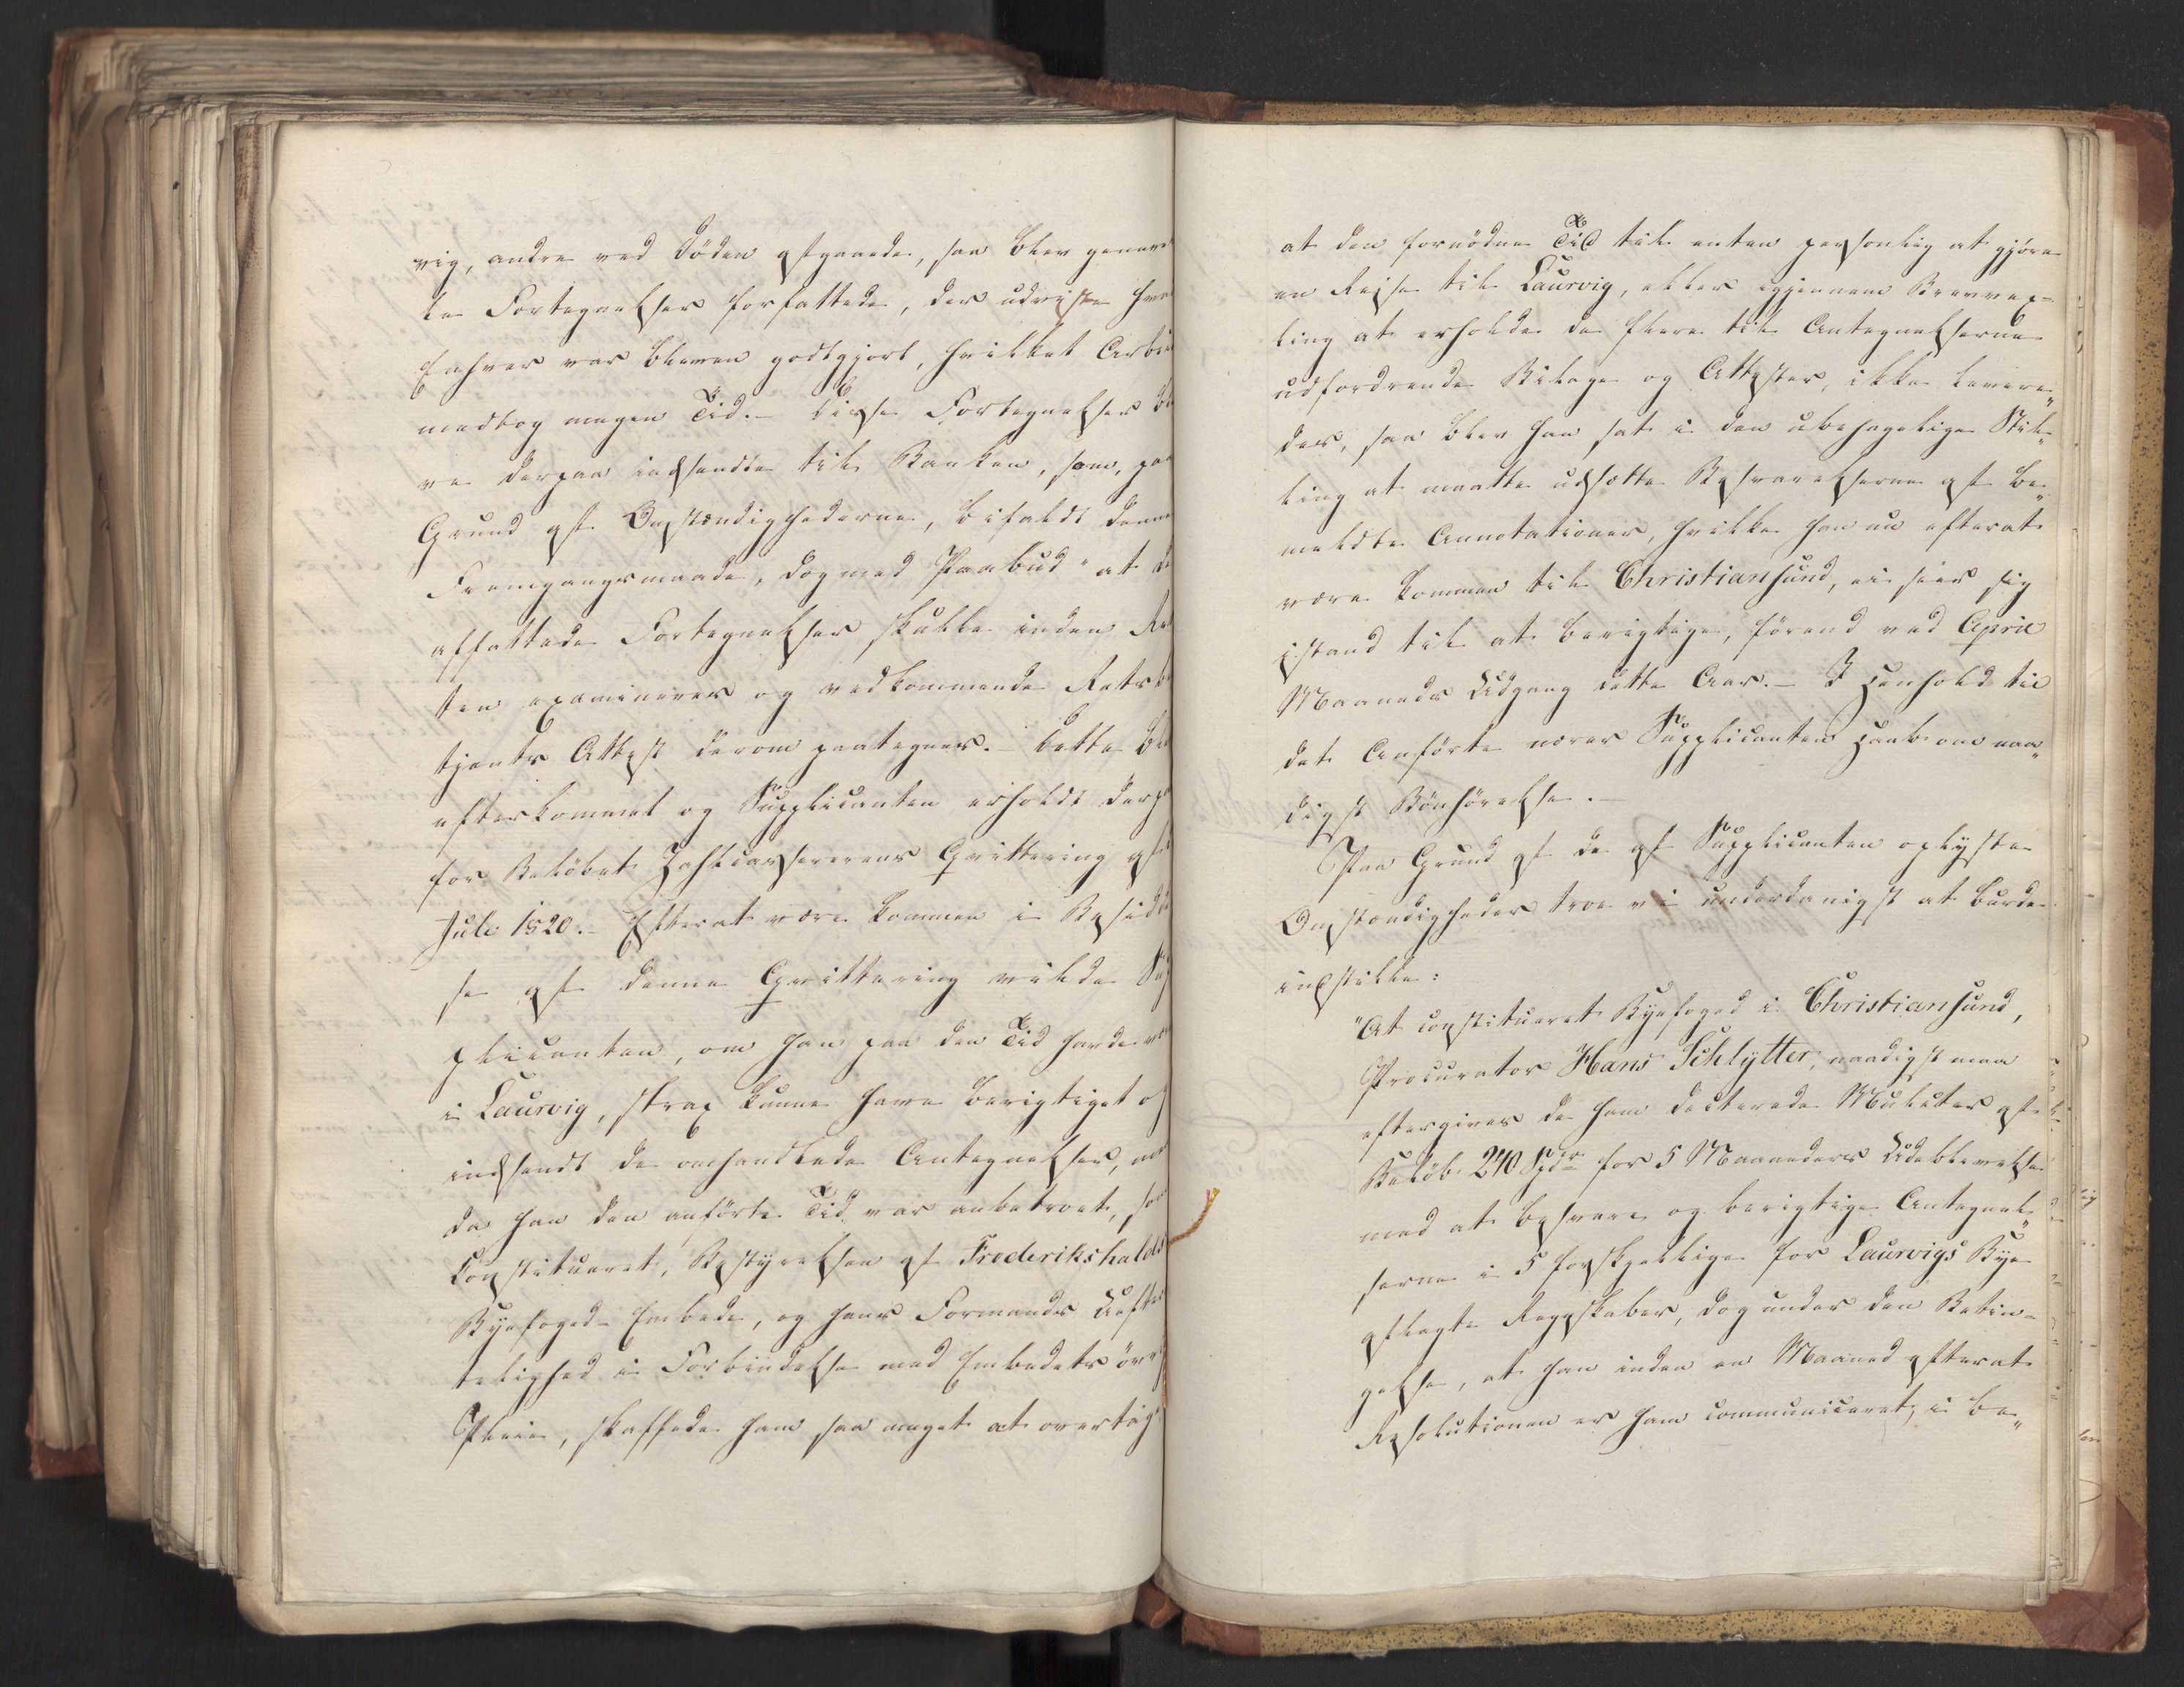 vig, andre ved Döden afgaaede, saa blev gener
le Fortegnelser forfattede, der udviste hva
Enhver var bleven godtgjort, hvilket Arbei
medtog megen Tid. – Disse Fortegnelser bl
ve derpaa indsendte til Banken, som, paa
Grund af Omstændighederne, bifaldt denne
Fremgangsmaade, dog med Paabud "at de
affattede Fortegnelser skulle inden Ret
ten examineres og vedkommende Retsbe
tjents Attest derom paategnes. – Dette bl
efterkommet og Supplicanten erholdt derpa
for Belöbet Zahlcassererens Qvittering af
Juli 1820. – Efterat være kommen i Besid
se af denne Qvittering vilde Sup
plicanten, om han paa den Tid havde vær
i Laurvig, strax kunne have berigtiget og
indsendt de omhandlede Antegnelser, me
da han den anförte Tid var anbetroet, som
Constitueret, Bestyrelsen af Frederikshalds
Byefoged-Embede, og hans Formands Uefter
telighed i Forbindelse med Embedets övr
Pleie, skaffede ham saa meget at overtag
at den fornödne Tid til enten personlig at gjöre
en Reise til Laurvig, eller igjennem Brevvex-
ling at erholde de flere til Antegnelserne
udfordrende Bilage og Attester, ikke levere
des, saa blev han sat i den ubehagelige Stil
ling at maatte udsætte Besvarelserne af be
meldte Annotationer, hvilke han nu efterat
være kommen til Christiansund, ei seer sig
istand til at berigtige, förend ved April
Maaneds Udgang dette Aar. – I Henhold til
det Anförte nærer Supplicanten Haab om naa
digst Bönhörelse. –
Paa Grund af de af Supplicanten oplyste
Omstændigheder troe vi underdanigst at burde
indstille:
"At constitueret Byefoged i Christiansund,
Procurator Hans Schlytter, naadigst maa
eftergives de ham dicterede Mulcter af
Belöb 240 Spdr for 5 Maaneders Udeblivelse
med at besvare og berigtige Antegnel
serne i 5 forskjellige for Laurvigs Bye
aflagte Regnskaber, dog under den Betin-
gelse, at han inden en Maaned efterat
Resolutionen er ham communiceret, i be